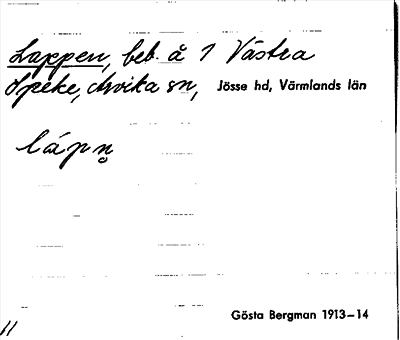 Lappen, beb. å 1 Västra
Speke, Arvika sn, Jösse hd, Värmlands län
lápn̥
Gösta Bergman 1913–14
11